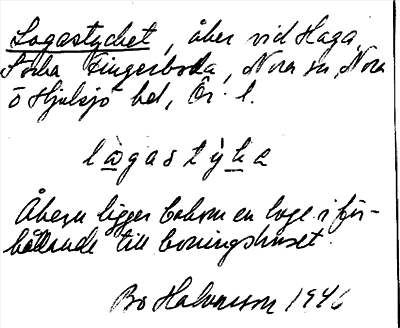 Logastycket, åker vid Haga,
Norha Fingerboda, Nora sn, Nora
o Hjulsjö bel, Ör. l.
lògastỳka
Åkern ligger bakom en loge i för-
hållande till boningshuset.
Bo Halvarsson 1946